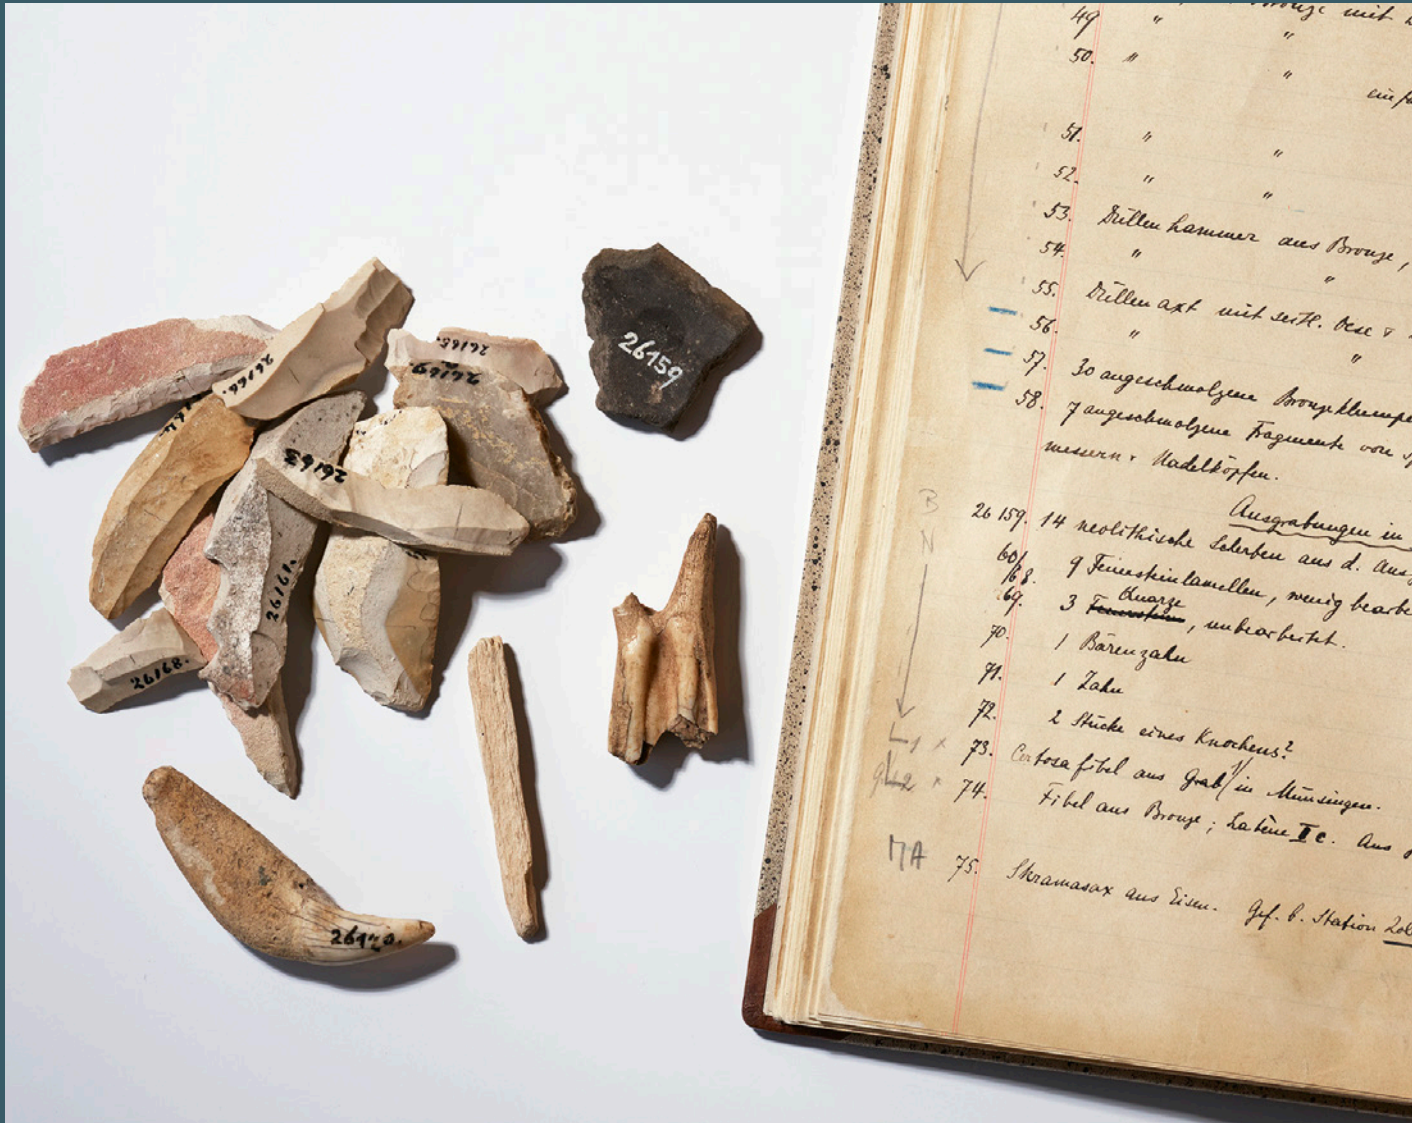 26166.
26168.
26169.
26159
26163
26161.
26168.
26170.
Bronze mit
49 " "
50. " "
51. " "
52. " "
53. Düllenhammer aus Bronze,
54. " "
55. Düllenaxt mit seitl. Oese &
56. " "
57. 30 angeschmolzene Bronzeklumpe
58. 7 angeschmolzene Fragmente von
messern & Nadelköpfen.
Ausgrabungen in
B
N
26159. 14 neolithische Scherben aus d. Ausg
60/68. 9 Feuersteinlamellen, wenig bearbe
69. 3 Feuerstein Quarze, unbearbeitet.
70. 1 Bärenzahn
71. 1 Zahn
72. 2 Stücke eines Knochens?
L1 x 73. Certosafibel aus Grab in Münsingen.
L2 x 74. Fibel aus Bronze; Latène II c. Aus
MA 75. Skramasax aus Eisen. Gef. b. Station Zol